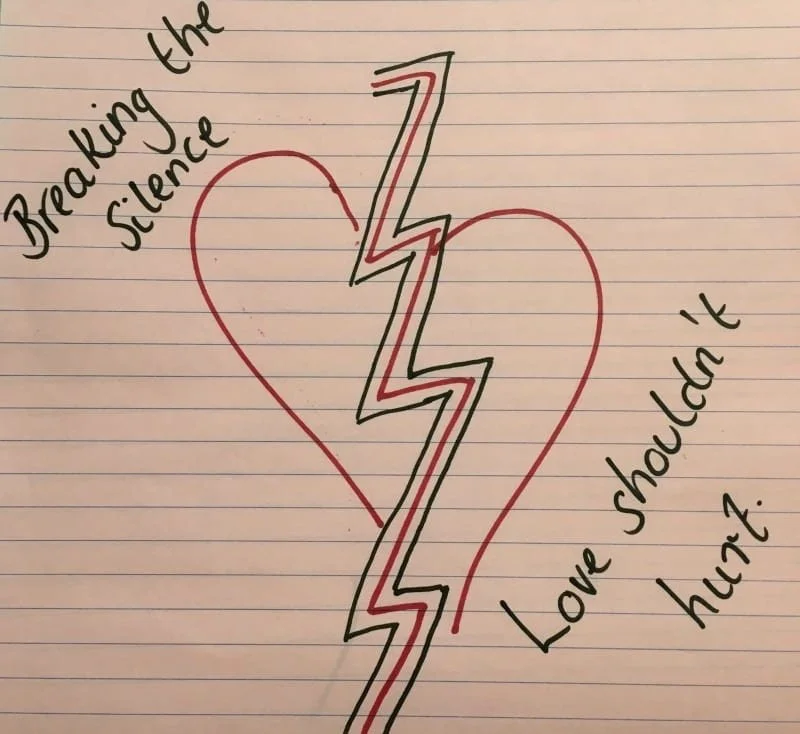 Breaking the
Silence
Love shouldn't
hurt.